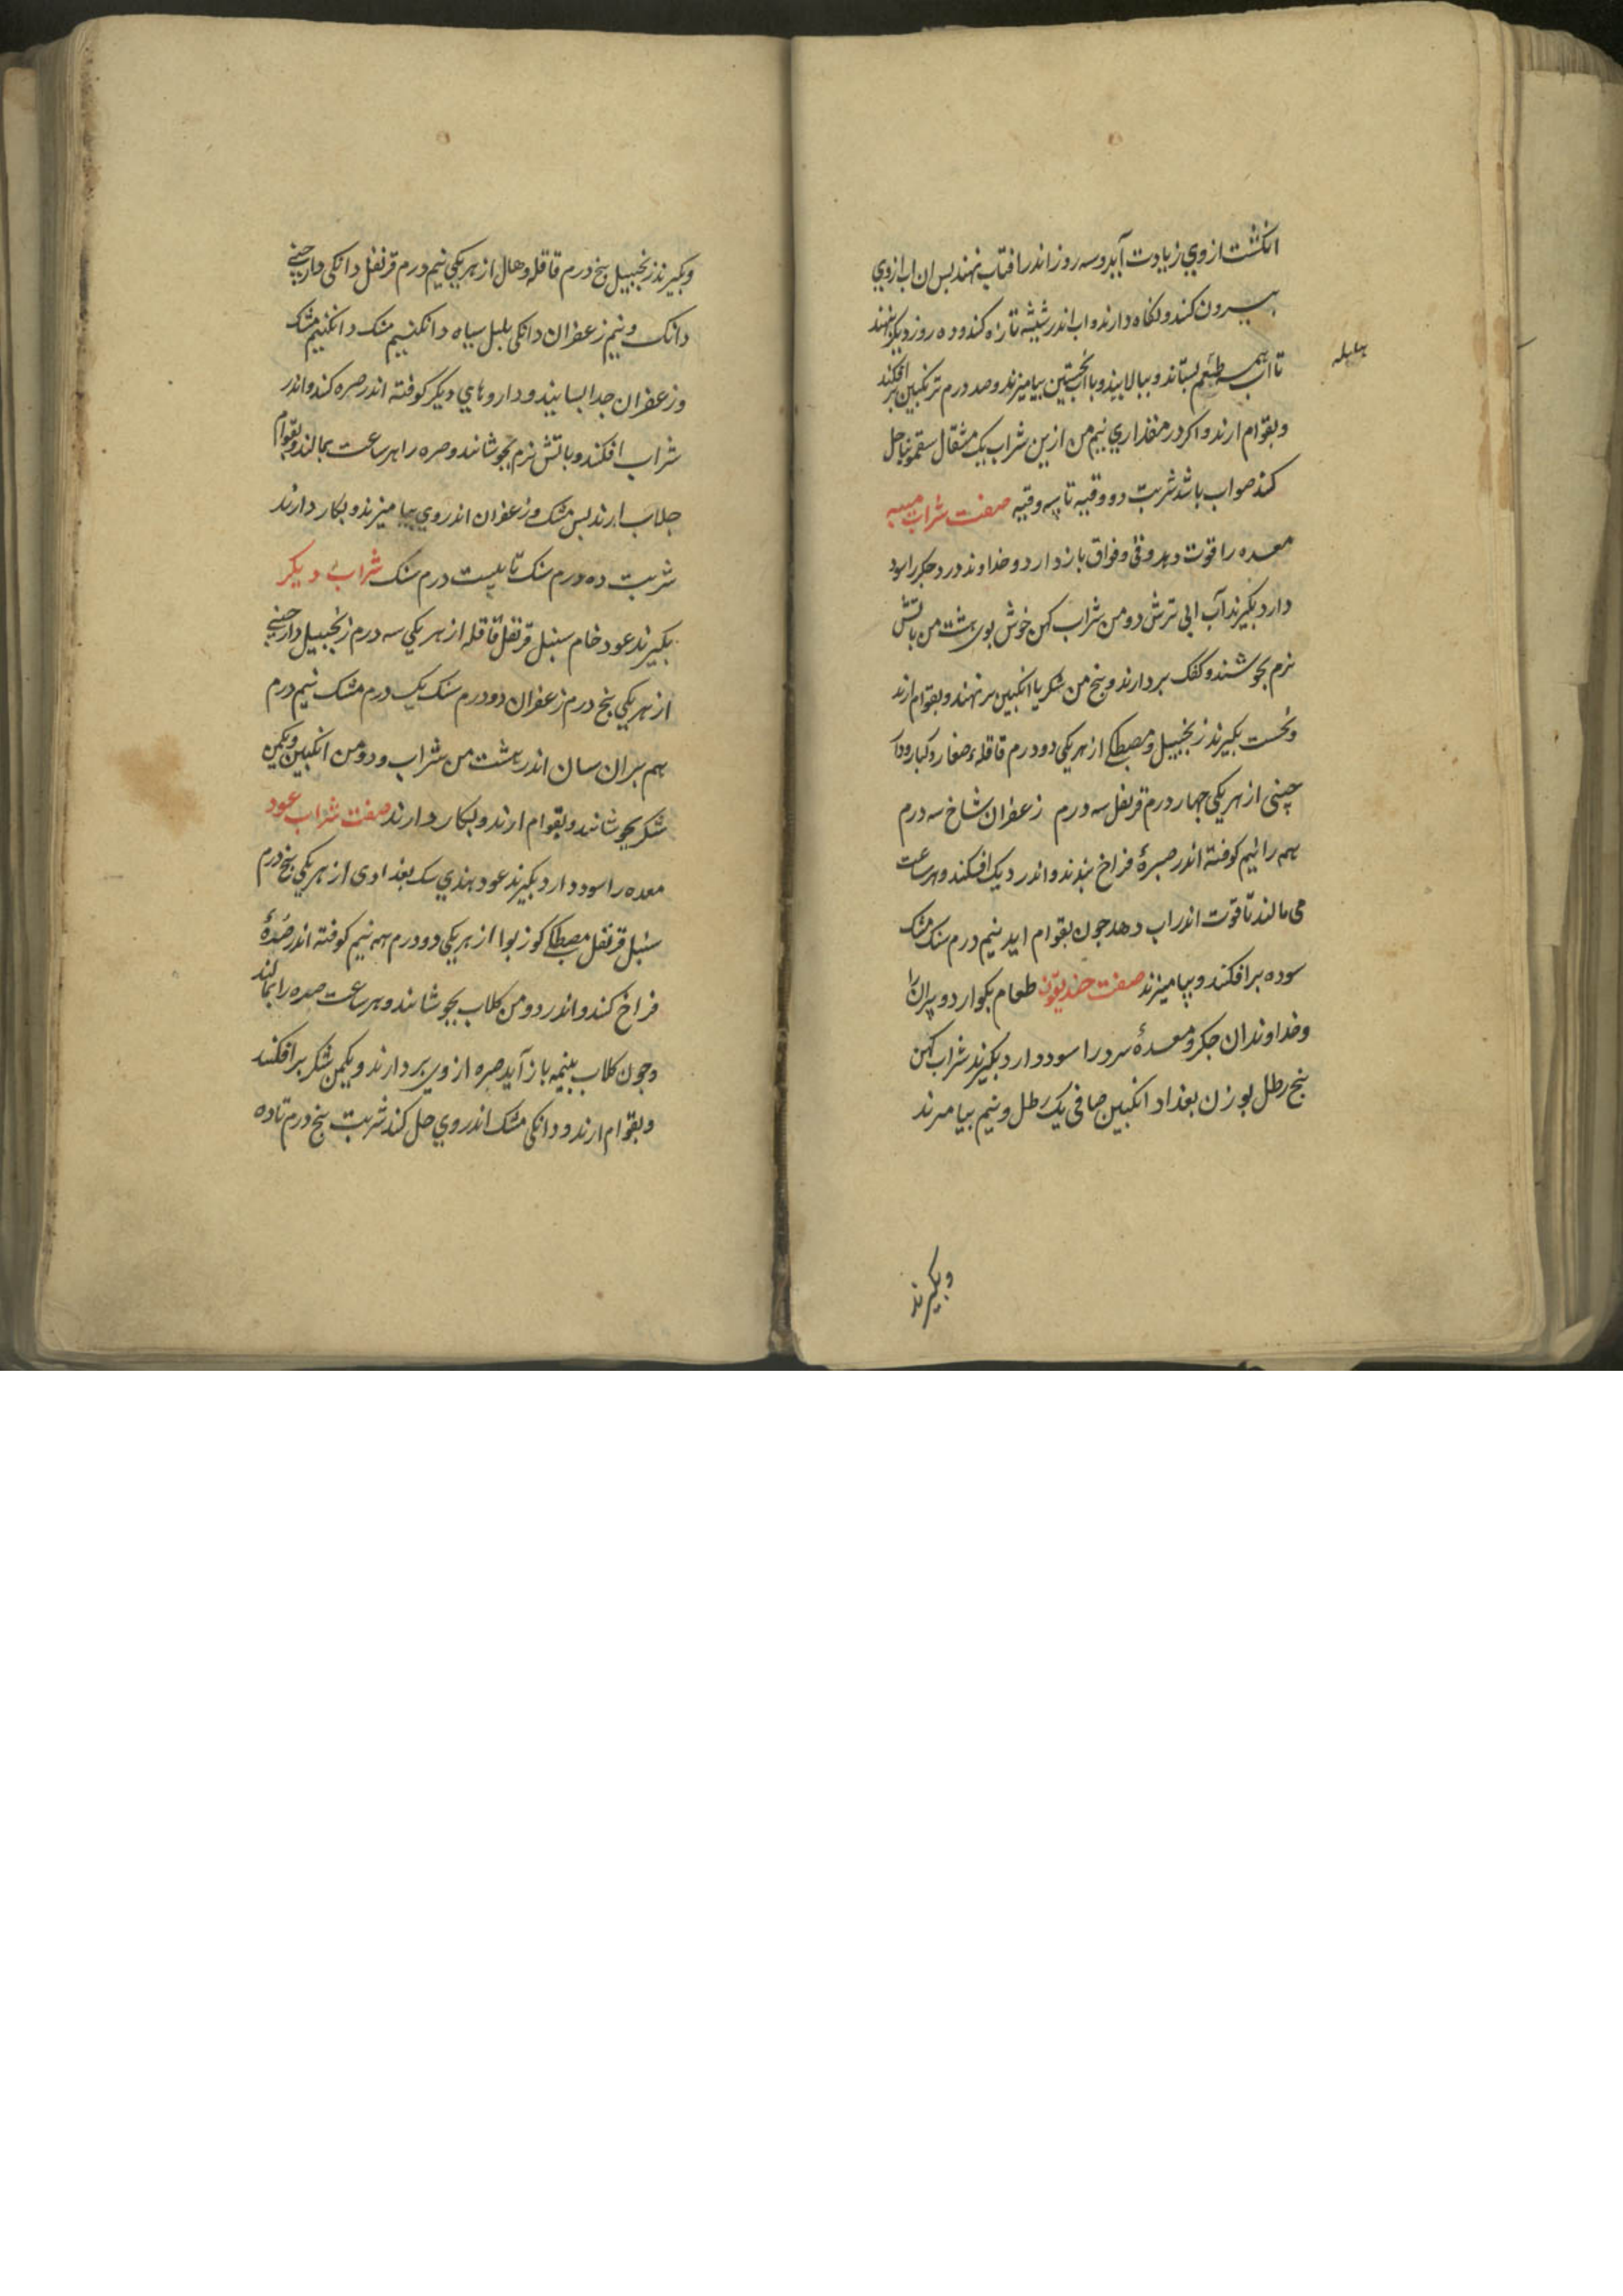 انکشت ازوي زیادت آید و سه روز اندر افتاب نهند بس ان اب ازوي
بیرون کنند و نکاه دارند و اب اندر شیشه تازه کنند و ده روز دیکر بنهند
تا اب همه طعم بستاند و ببالایند و با اب نخستین بیامیزند و صد درم ترنکبین بر افکند
هلیله
و بقوام ارند و اکر در مقداري نیم من ازین شراب یک مثقال سقمونیا حل
کنند صواب باشد شربت دو وقیه تا سه وقیه صفت شراب میبه
معده را قوت دهد و قی و فواق باز دارد و خداوند درد جکر را سود
دارد بکیرند آب ابی ترش دو من شراب کهن خوش بوی هشت من باتش
نرم بجوشند و کفک بردارند و بنج من شکر یا انکبین برنهند و بقوام ارند
و نخست بکیرند زنجبیل و مصطکي از هر یکی دو درم قاقلهء صغار و کبار و دار
چینی از هر یکی چهار درم قرنفل سه درم زعفران شاخ سه درم
همه را نیم کوفته اندر صرهٔ فراخ بندند و اندر دیک افکنند و هر ساعت
می مالند تا قوت اندر اب دهد جون بقوام اید نیم درم سنک مشک
سوده بر افکنند و بیامیزند صفت خندیقون طعام بکوارد و پیران را
و خداوندان جکر و معدهٔ سرد را سود دارد بکیرند شراب کهن
بنج رطل بوزن بغداد انکبین صافی یک رطل و نیم بیامیزند
وبکیرند
وبکیرند زنجبیل بنج درم قاقله و هال از هر یکی نیم درم قرنفل دانکی دارچینی
دانک و نیم زعفران دانکی بلبل سیاه دانکنیم مشک دانکنیم مشک
و زعفران جدا بسایند و داروهاي دیکر کوفته اندر صره کنند و اندر
شراب افکنند و باتش نرم بجوشانند و صره را هر ساعت بمالند و بقوام
جلاب ارند بس مشک و زعفران اندر وي بیامیزند و بکار دارند
شربت ده درم سنک تا بیست درم سنک شرابٔ دیکر
بکیرند عود خام سنبل قرنفل قاقله از هر یکی سه درم زنجبیل دارچینی
از هر یکی بنج درم زعفران دو درم سنک یک درم مشک نیم درم
هم بران سان اندر هشت من شراب و دو من انکبین و یکمن
شکر بجوشانند و بقوام ارند و بکار دارند صفت شراب عود
معده را سود دارد بکیرند عود هندي سک بغدادی از هر یکی بنج درم
سنبل قرنفل مصطکي کوز بوا از هر یکی دو درم همه نیم کوفته اندر صرهٔ
فراخ کنند و اندر دو من کلاب بجوشانند و هر ساعت صره را بمالند
و جون کلاب بنیمه باز آید صره از وی بردارند و یکمن شکر بر افکنند
و بقوام ارند و دانکی مشک اندر وي حل کنند شربت بنج درم تا ده